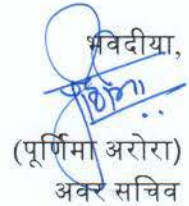 भवेदीया,
(पूर्णिमा अरोरा)
अवर सचिव